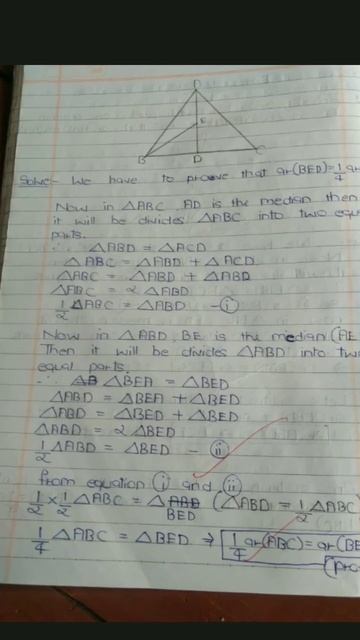 A
E
B D C
Solve:- We have to prove that ar(BED)=1/4 ar
Now in △ABC, AD is the median then
it will be divides △ABC into two equal
parts.
∴ △ABD = △ACD
△ABC = △ABD + △ACD
△ABC = △ABD + △ABD
△ABC = 2 △ABD
1/2 △ABC = △ABD - (i)
Now in △ABD, BE is the median (AE
Then it will be divides △ABD into two
equal parts.
∴ △BEA = △BED
△ABD = △BEA + △BED
△ABD = △BED + △BED
△ABD = 2 △BED
1/2 △ABD = △BED - (ii)
from equation (i) and (ii)
1/2 × 1/2 △ABC = △BED (△ABD = 1/2 △ABC
1/4 △ABC = △BED ⇒ 1/4 ar(ABC) = ar(BE